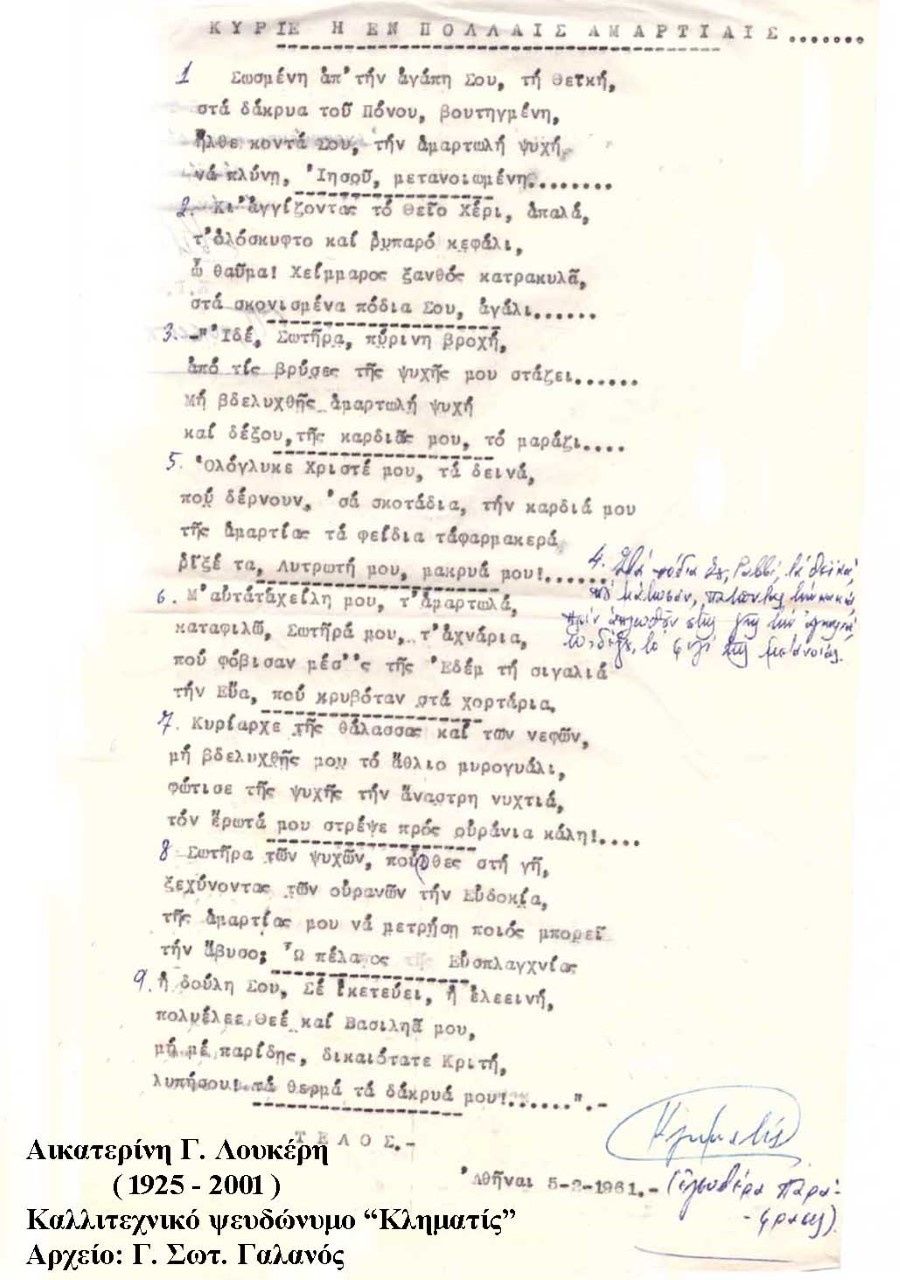 ΚΥΡΙΕ Η ΕΝ ΠΟΛΛΑΙΣ ΑΜΑΡΤΙΑΙΣ.......
1 Σωσμένη ἀπ'τήν ἀγάπη Σου, τή θεϊκή,
στά δάκρυα τοῦ Πόνου, βουτηγμένη,
ἦλθε κοντά Σου, τήν ἁμαρτωλή ψυχή,
νά πλύνη, Ἰησοῦ, μετανοιωμένη........
2. Κι'ἀγγίζοντας τό θεῖο Χέρι, ἁπαλά,
τ'ὁλόσκυφτο καί ῥυπαρό κεφάλι,
ὤ θαῦμα! Χείμμαρος ξανθός κατρακυλᾶ,
στά σκονισμένα πόδια Σου, ἀγάλι......
3. -"Ἰδέ, Σωτῆρα, πύρινη βροχή,
ἀπό τίς βρύσες τῆς ψυχῆς μου στάζει......
Μή βδελυχθῆς ἁμαρτωλή ψυχή
καί δέξου,τῆς καρδιᾶς μου, τό μαράζι....
5. Ὁλόγλυκε Χριστέ μου, τά δεινά,
πού δέρνουν, 'σά σκοτάδια, τήν καρδιά μου
τῆς ἁμαρτίας τά φείδια τάφαρμακερά
ρῖξέ τα, Λυτρωτή μου, μακρυά μου!......
4. Στά πόδια Σου, Ραββί, τά θεϊκά,
6. Μ'αὐτάταχείλη μου, τ'ἁμαρτωλά,
καταφιλῶ, Σωτῆρά μου, τ'ἀχνάρια,
πού φόβισαν μέσ''ς τῆς Ἐδέμ τή σιγαλιά
τήν Εὔα, πού κρυβόταν στά χορτάρια.
7. Κυρίαρχε τῆς θάλασσας καί τῶν νεφῶν,
μή βδελυχθῆς μου τό ἄθλιο μυρογυάλι,
φώτισε τῆς ψυχῆς τήν ἄναστρη νυχτιά,
τόν ἔρωτά μου στρέψε πρός οὐράνια κάλη!....
8 Σωτῆρα τῶν ψυχῶν, ποὖρθες στή γῆ,
ξεχύνοντας τῶν οὐρανῶν τήν Εὐδοκία,
τῆς ἁμαρτίας μου νά μετρήση ποιός μπορεῖ
τήν ἄβυσο; Ὦ πέλαγος τῆς Εὐσπλαγχνίας
9. ἡ δούλη Σου, Σέ ἱκετεύει, ἡ ἐλεεινή,
πολυέλεε Θεέ καί Βασιληᾶ μου,
μή μέ παρίδης, δικαιότατε Κριτή,
λυπήσου! τά θερμά τά δάκρυά μου!......".-
ΤΕΛΟΣ.-
Κληματίς
Ἀθῆναι 5-2-1961.- (ἐλευθέρα παρά-
-φρασις).
Αικατερίνη Γ. Λουκέρη
( 1925 - 2001 )
Καλλιτεχνικό ψευδώνυμο “Κληματίς”
Αρχείο: Γ. Σωτ. Γαλανός